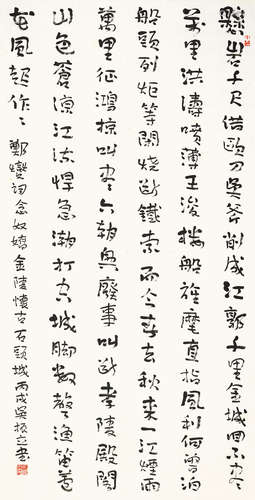 懸岩千尺借歐刀吳斧削成江郭千里金城回不盡
萬里洪濤噴薄王浚樓船旌麾直指風利何曾泊
船頭列炬等閑燒斷鐵索而今春去秋來一江煙雨
萬里征鴻掠叫盡六朝興廢事叫斷孝陵殿閣
山色蒼涼江流悍急潮打空城腳數聲漁笛蘆
花風起作作 鄭燮詞念奴嬌金陵懷古石頭城丙戌吳振立書